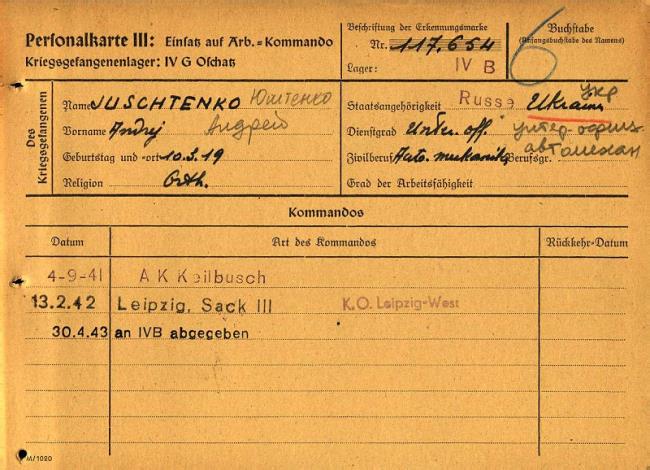 Personalkarte III: Einsatz auf Arb.=Kommando
Kriegsgefangenenlager: IV G Oschatz
Beschriftung der Erkennungsmarke
Nr. 117.654
Lager: IV B
6
Buchstabe
(Anfangsbuchstabe des Namens)
Des Kriegsgefangenen
Name JUSCHTENKO Ющенко
Vorname Andrej Андрей
Geburtstag und -ort 10.3.19
Religion Orth.
Staatsangehörigkeit Russe Ukrainer укр
Dienstgrad Unter.off. унтер-офиц.
Zivilberuf Auto.mechanik Berufsgr. автомехан
Grad der Arbeitsfähigkeit
Kommandos
Datum Art des Kommandos Rückkehr-Datum
4-9-41 A K Keilbusch
13.2.42 Leipzig, Sack III K.O. Leipzig-West
30.4.43 an IVB abgegeben
M/1020